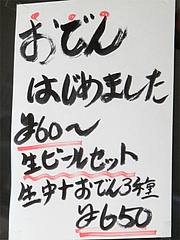 おでん
はじめました
¥60〜
生ビールセット
生中+おでん3種
¥650